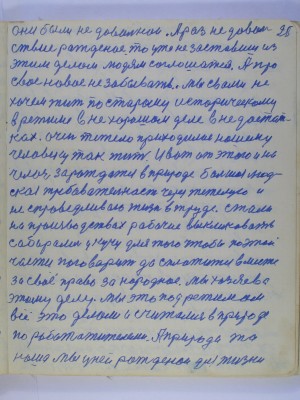 они были не довольное. А раз не доволь- 26
ствие рожденое то уже не заставиш из
этим делом людям соглошатся. А про
свое новое не забывать. Мы с вами не
хочем жит по старому историческому
врежиме в не хорошом деле в недостат-
ках. очен тяжело приходилос нашему
человеку так жить. И вот от этого и на-
чалос зарождатся в природе болшая люд-
ская требователност чему тяжелую и
не справедливаю жизн в труде. Стали
на производствах рабочие выкликоват
собиралис у кучу для того чтобы по этой
части поговорит да сплотится вместе
за своё право за народное. Мы хозяева
этому делу. Мы это подретимаем
всё это делаем и считались в природе
поработителями. А природа то
наша мы у ней рождены для жизни